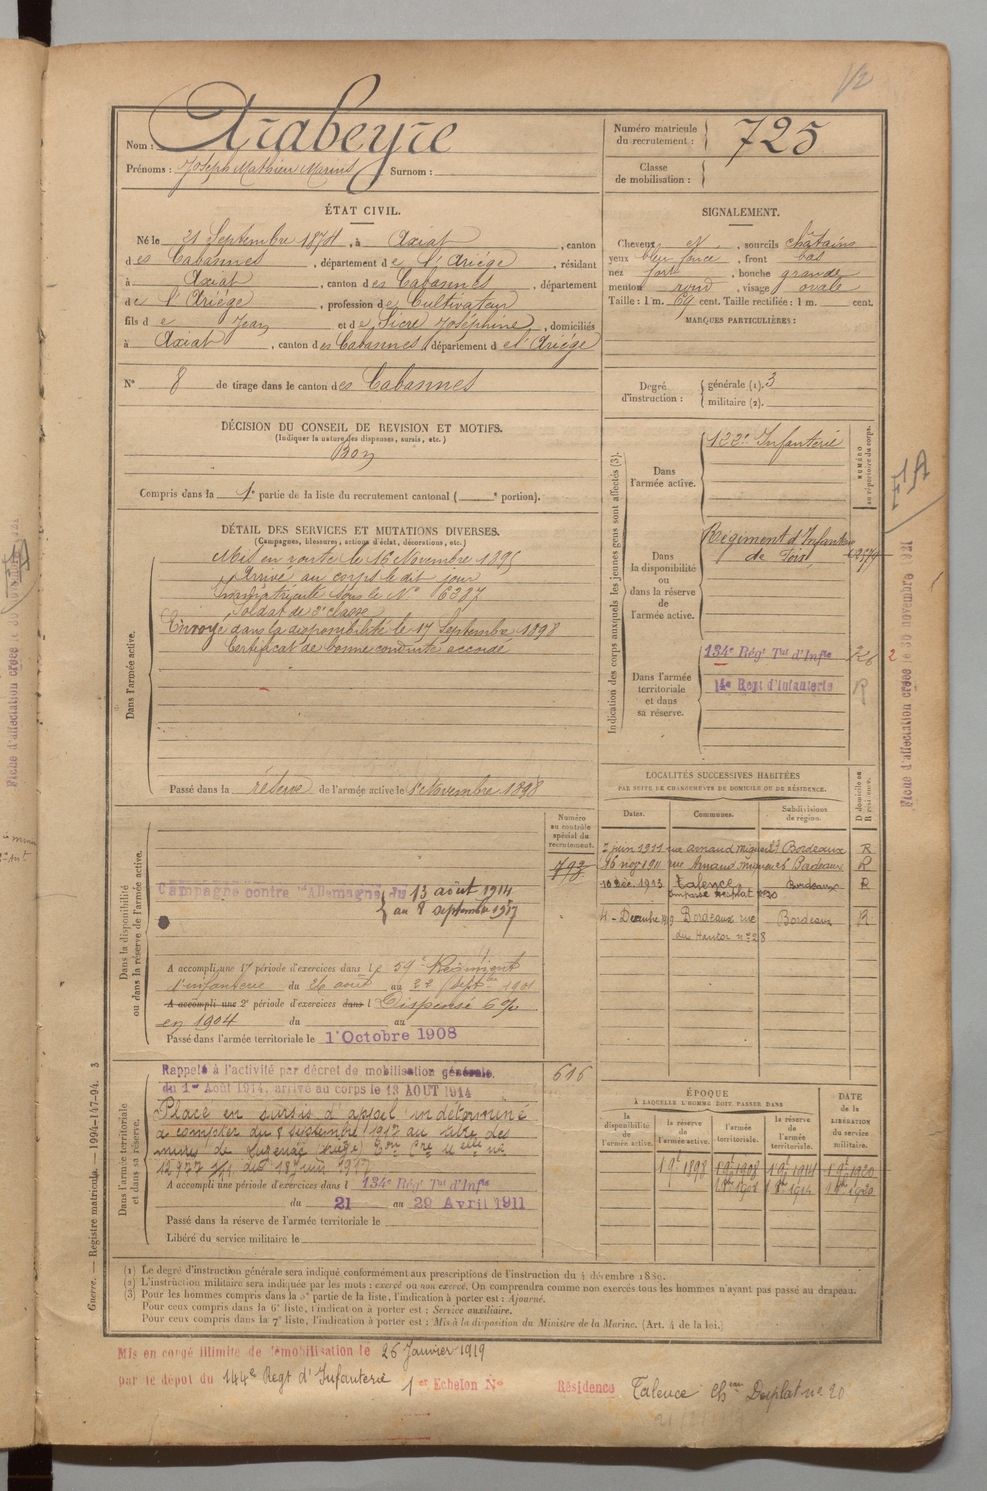 Nom : Arabeyre
Prénoms : Joseph Mathieu Marius Surnom :
Numéro matricule du recrutement : 725
Classe de mobilisation :
ÉTAT CIVIL.
Né le 21 Septembre 1874, à Axiat, canton
des Cabannes, département de l'Ariège, résidant
à Axiat, canton des Cabannes, département
de l'Ariège, profession de Cultivateur
fils de Jean et de Sicre Joséphine, domiciliés
à Axiat, canton des Cabannes, département de l'Ariège
N° 8 de tirage dans le canton des Cabannes
DÉCISION DU CONSEIL DE REVISION ET MOTIFS.
(Indiquer la nature des dispenses, sursis, etc.)
Bon
Compris dans la 1e partie de la liste du recrutement cantonal ( e portion).
SIGNALEMENT.
Cheveux et, sourcils châtains
yeux bleu foncé, front bas
nez fort, bouche grande
menton rond, visage ovale
Taille : 1 m. 64 cent. Taille rectifiée : 1 m. cent.
MARQUES PARTICULIÈRES :
Degré d'instruction : générale (1). 3
militaire (2).
DÉTAIL DES SERVICES ET MUTATIONS DIVERSES.
(Campagnes, blessures, actions d'éclat, décorations, etc.)
Dans l'armée active.
Mis en route le 16 Novembre 1895
Arrivé au corps le dit jour
Immatriculé sous le N° 6327
Soldat de 2e classe
Envoyé dans la disponibilité le 17 Septembre 1898
Certificat de bonne conduite accordé
Passé dans la réserve de l'armée active le 1er Novembre 1898
Indication des corps auxquels les jeunes gens sont affectés (3).
NUMÉRO au répertoire du corps.
Dans l'armée active.
122e Infanterie
Dans la disponibilité ou dans la réserve de l'armée active.
Régiment d'Infanterie
de Foix
Dans l'armée territoriale et dans sa réserve.
134e Régt Tal d'Infie
14e Regt d'Infanterie R
2
F A
Fiche d'affectation créée le 30 novembre 1921
LOCALITÉS SUCCESSIVES HABITÉES
PAR SUITE DE CHANGEMENTS DE DOMICILE OU DE RÉSIDENCE.
Dates. Communes. Subdivisions de région. D domicile ou R résidence.
2 juin 1911 rue Arnaud Miqueu Bordeaux R
16 nov 1911 rue Arnaud Miqueu Bordeaux R
10 Déc. 1913 Talence Bordeaux R
Impasse Desplat n°20
4 Décembre Bordeaux rue Bordeaux R
du n°28
Dans la disponibilité ou dans la réserve de l'armée active.
Numéro au contrôle spécial du recrutement.
793
Campagne contre l'Allemagne du 13 août 1914
au 8 septembre 1917
A accompli une 1re période d'exercices dans le 59e Régiment
d'infanterie du 26 août au 22 septbre 1901
A accompli une 2e période d'exercices dans l Dispensé 6%
en 1904 du au
Passé dans l'armée territoriale le 1er Octobre 1908
Dans l'armée territoriale et dans sa réserve.
Rappelé à l'activité par décret de mobilisation générale.
du 1er Août 1914, arrivé au corps le 13 AOUT 1914
616
Placé en sursis d'appel indéterminé
à compter du 8 septembre 1917 au titre des
mines de Luzenac (Ariège)
12977 du 18 juin 1917
A accompli une période d'exercices dans l 134e Régt Tal d'Infie
du 21 au 29 Avril 1911
Passé dans la réserve de l'armée territoriale le
Libéré du service militaire le
ÉPOQUE
À LAQUELLE L'HOMME DOIT PASSER DANS
la disponibilité de l'armée active. la réserve de l'armée active. l'armée territoriale. la réserve de l'armée territoriale. DATE de la LIBÉRATION du service militaire.
1 9e 1898 1 9e 1908 1 9e 1914 1 9e 1920
1 8bre 1908 1 8bre 1914 1 8bre 1920
(1) Le degré d'instruction générale sera indiqué conformément aux prescriptions de l'instruction du 4 décembre 1889.
(2) L'instruction militaire sera indiquée par les mots : exercé ou non exercé. On comprendra comme non exercés tous les hommes n'ayant pas passé au drapeau.
(3) Pour les hommes compris dans la 5e partie de la liste, l'indication à porter est : Ajourné.
Pour ceux compris dans la 6e liste, l'indication à porter est : Service auxiliaire.
Pour ceux compris dans la 7e liste, l'indication à porter est : Mis à la disposition du Ministre de la Marine. (Art. 4 de la loi.)
Guerre. — Registre matricule. — 1994-147-94. 3
Mis en congé illimité de démobilisation le 26 Janvier 1919
par le dépot du 144e Regt d'Infanterie 1er Echelon N° Résidence Talence chin Desplat n° 20